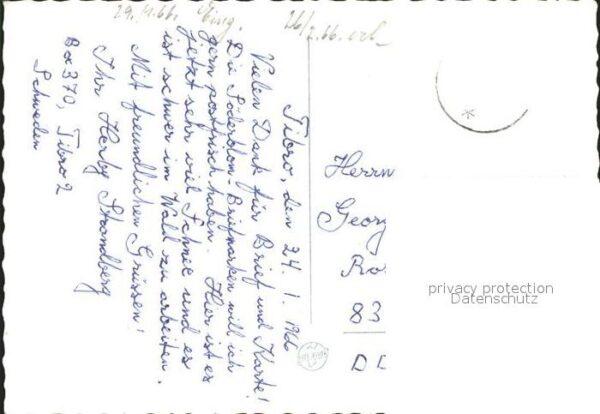 29.11.66.
26/2.66. erh
Tibro, den 24. 1. 1966
Vielen Dank für Brief und Karte!
Die Söderblom-Briefmarken will ich
gern postfrisch haben. Hier ist es
jetzt sehr viel Schnee und es
ist schwer im Wald zu arbeiten.
Mit freundlichen Grüssen!
Ihr Herby Strandberg
Box 370, Tibro 2
Schweden
Herrn
Georg
Ro
83
DD
privacy protection
Datenschutz